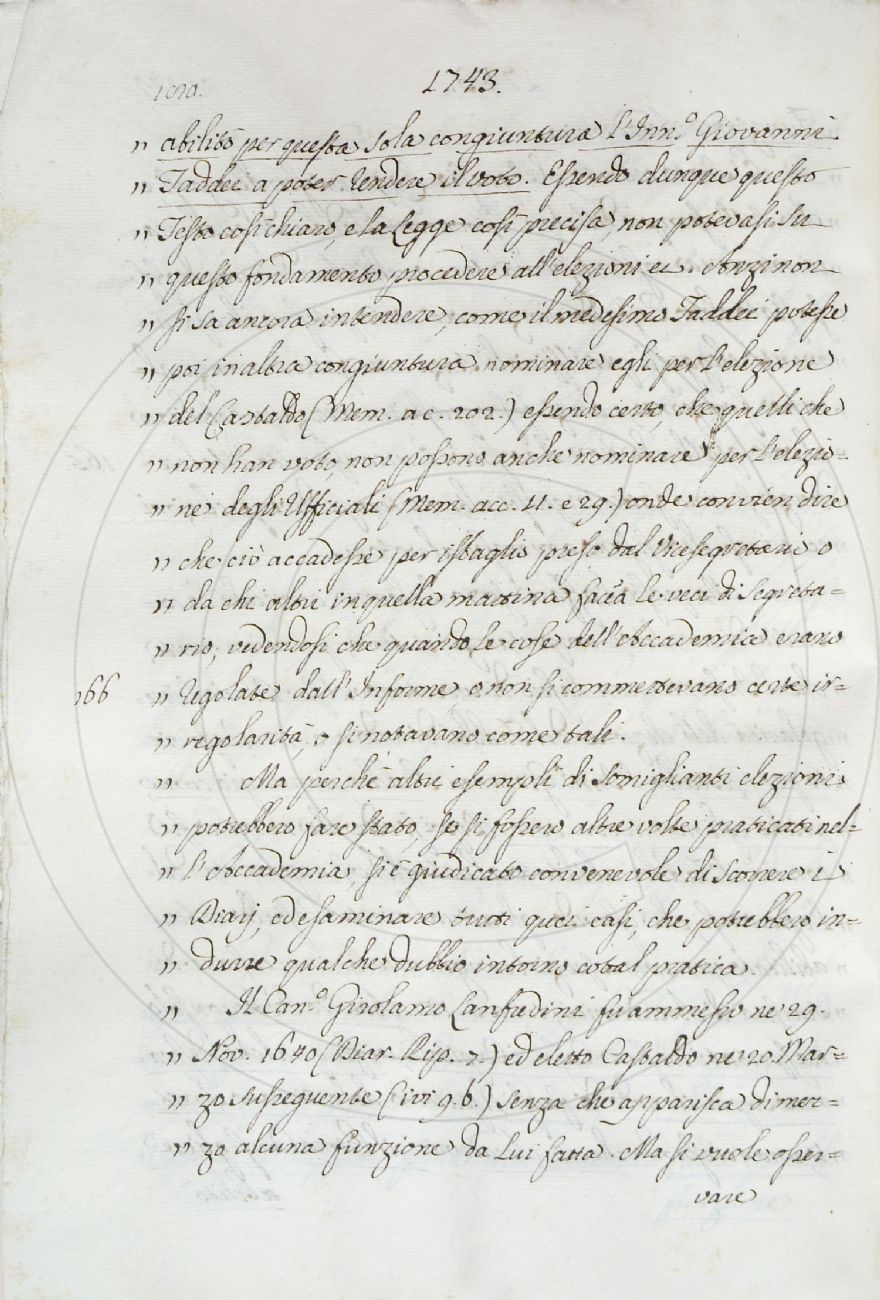 1743.
„ abilitò per questa sola congiuntura l'Inn.º Giovanni
„ Taddei a poter rendere il voto. Essendo dunque questo
„ Testo così chiaro, e la Legge così precisa, non potevasi su
„ questo fondamento procedere all'elezioni ec. Anzi non
„ si sa ancora intendere, come il medesimo Taddei potesse
„ poi in altra congiuntura nominare egli per l'elezione
„ del Castaldo (Mem. a c. 202.) essendo certo, che quelli che
„ non han voto, non possono anche nominare per l'elezio=
„ ne degli Ufficiali (Mem. acc. 11. e 29.) onde convien dire
„ che ciò accadesse per isbaglio preso dal Vicesegretario, o
„ da chi altri in quella mattina facea le veci di Segreta=
„ rio, vedendosi che quando le cose dell'Accademia erano
166 „ regolate dall'Informe, o non si commettevano certe ir=
„ regolarità, o si notavano come tali.
„ Ma perchè altri esempli di somiglianti elezioni
„ potrebbero fare stato, se si fossero altre volte praticati nel=
„ l'Accademia, si è giudicato convenevole di scorrere i
„ Diarj, ed esaminare tutti quei casi, che potrebbero in=
„ durre qualche dubbio intorno cotal pratica.
„ Il Can.º Girolamo Lanfredini fu ammesso ne' 29.
„ Nov. 1640 (Diar. Rip. 7.) ed eletto Castaldo ne' 20. Mar=
„ zo susseguente (ivi 9. b.) senza che apparisca di mer=
„ zo alcuna funzione da lui fatta. Ma si vuole osser=
vare